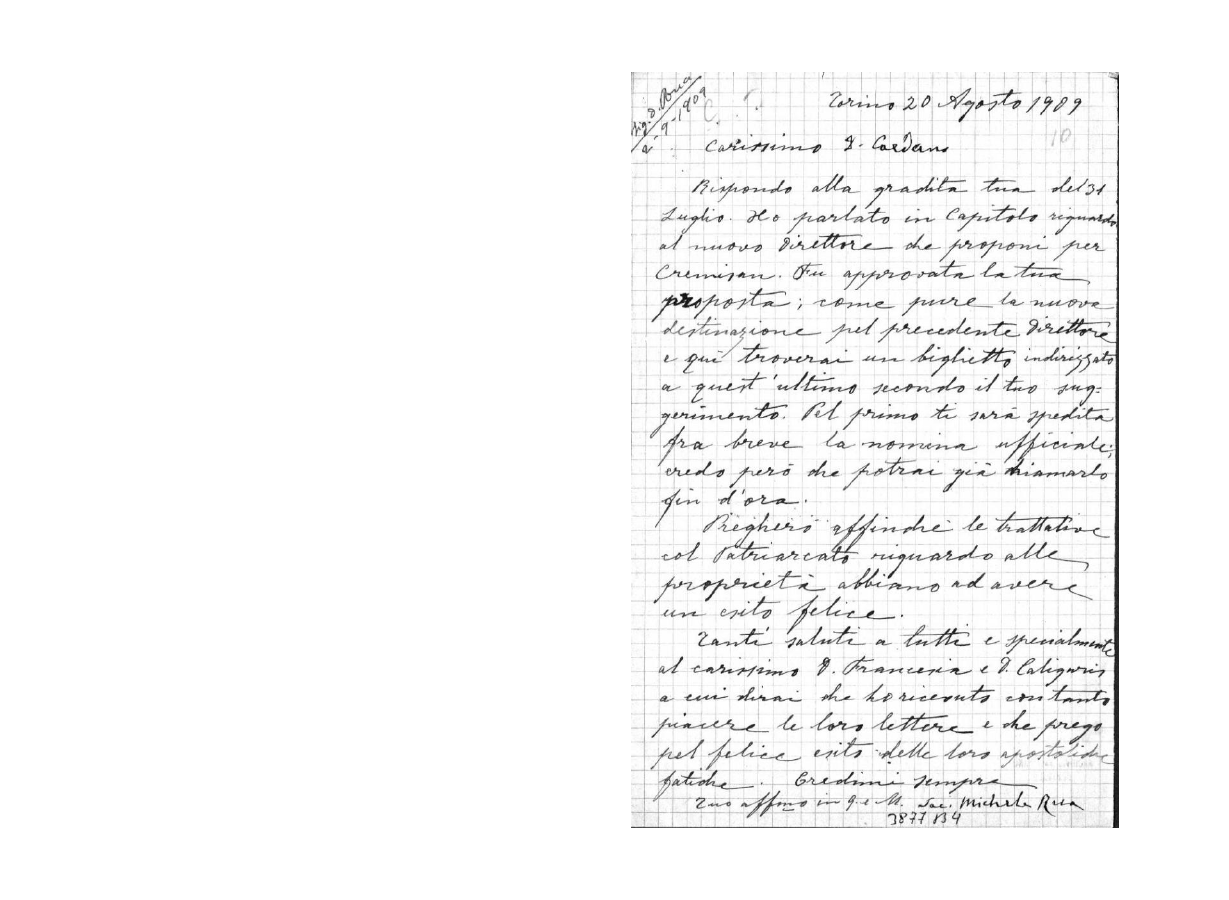 Orig. D. Rua
2-9-1909
C. T.
Torino 20 Agosto 1909
10
Carissimo D. Cardano
Rispondo alla gradita tua del 31
Luglio. Ho parlato in Capitolo riguardo
al nuovo direttore che proponi per
Cremisan. Fu approvata la tua
proposta; come pure la nuova
destinazione pel precedente direttore
e qui troverai un biglietto indirizzato
a quest'ultimo secondo il tuo sug=
gerimento. Pel primo ti sarà spedita
fra breve la nomina ufficiale;
credo però che potrai già chiamarlo
fin d'ora.
Pregherò affinché le trattative
col Patriarcato riguardo alle
proprietà abbiano ad avere
un esito felice.
Tanti saluti a tutti e specialmente
al carissimo D. Francesia e D. Caligaris
a cui dirai che ho ricevuto con tanto
piacere le loro lettere e che prego
pel felice esito delle loro apostoliche
fatiche. Credimi sempre
Tuo affmo in G. e M. Sac. Michele Rua
3877 B4